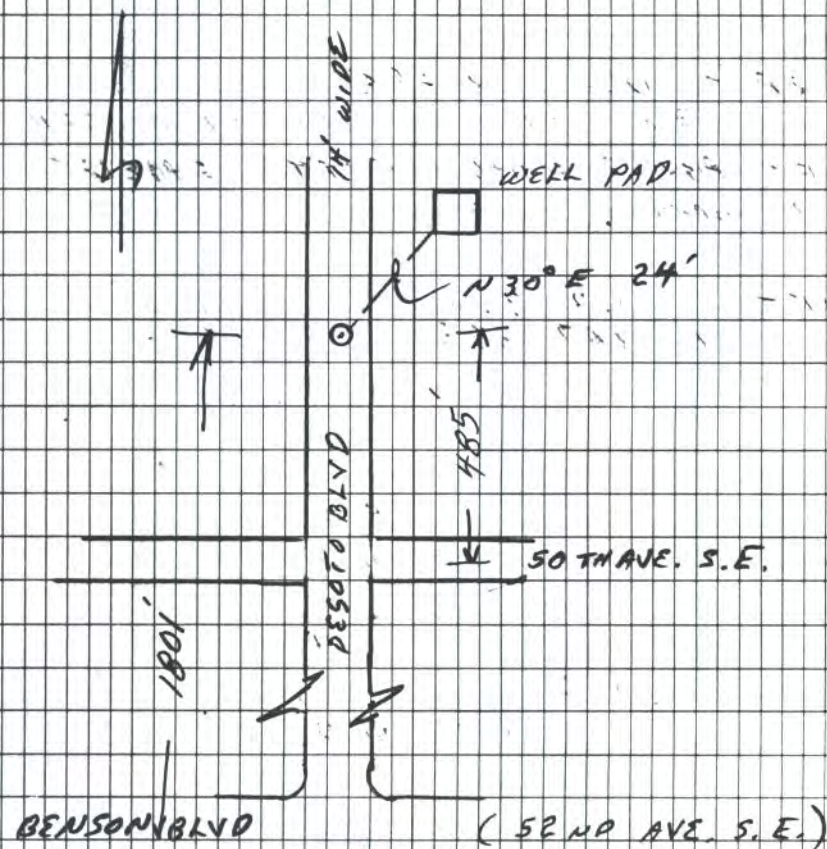 WIDE
WELL PAD
N 30° E 24'
485'
DESOTO BLVD
50 TH AVE. S.E.
1801'
BENSON BLVD
( 52 ND AVE. S. E. )